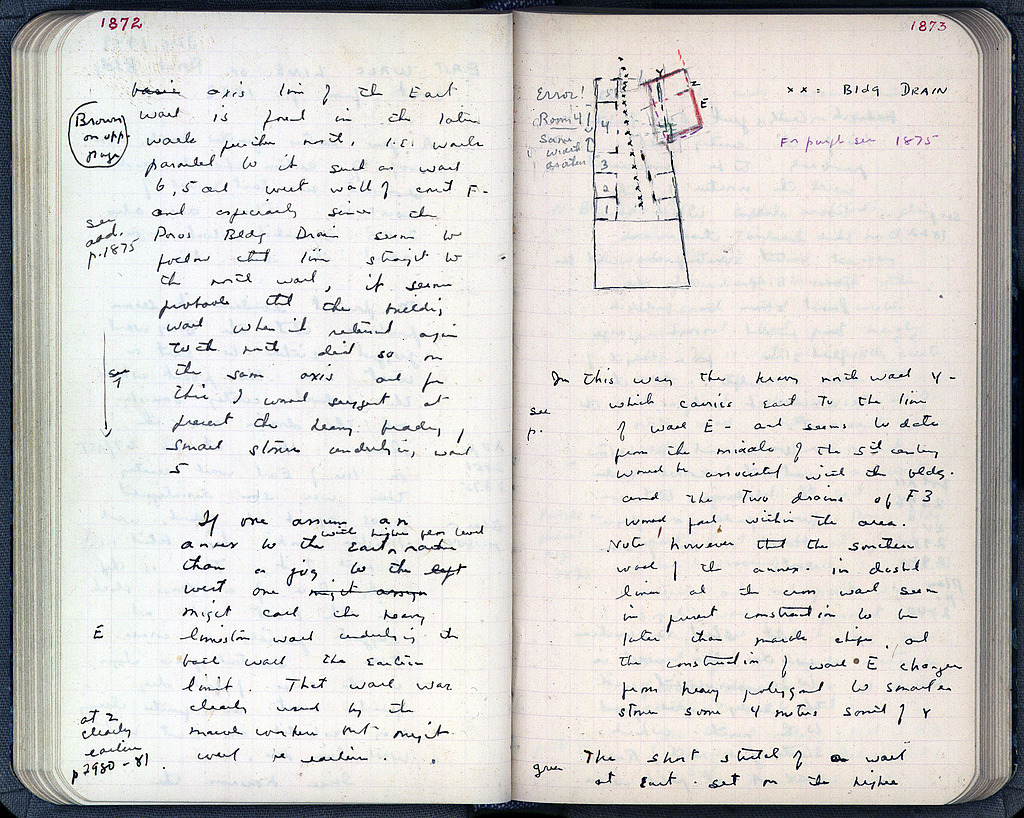 1872
basic axis line of the East
wall is found in the later
walls further north, i.e. walls
parallel to it such as wall
6, 5 and west wall of court F.
and especially since the
Poros Bldg Drain seems to
follow that line straight to
the north wall, it seems
probable that the building
wall when it returned again
to the north did so on
the same axis and for
this I would suggest at
present the heavy
small stones underlying wall
5
Brown
on opp.
page
see
add.
p.1875
see
↑
If one assumes an
annex to the East, rather
with higher floor level
than a jog to the left
west one might assign
might call the heavy
limestone wall underlying the
wall the Eastern
limit. That wall was
clearly used by the
marble workers but might
well be earlier.
E
at 2
clearly
earlier
p 2980-81
1873
Error!
Room 4!
Same
width
as others
4
3
2
1
Y
E
xx = Bldg DRAIN
For purple see 1875
In this way the heavy north wall Y -
which carries East to the line
of wall E - and seems to date
from the middle of the 5th century
would be associated with the bldg.
and the two drains of F3
would fall within the area.
Note, however that the southern
wall of the annex - in dashed
lines at the cross wall seems
in present construction to be
later than marble chips and
the construction of wall E changes
from heavy polygonal to smaller
stones some 4 meters south of Y
see
p.
The short stretch of a wall
at East - set on the higher